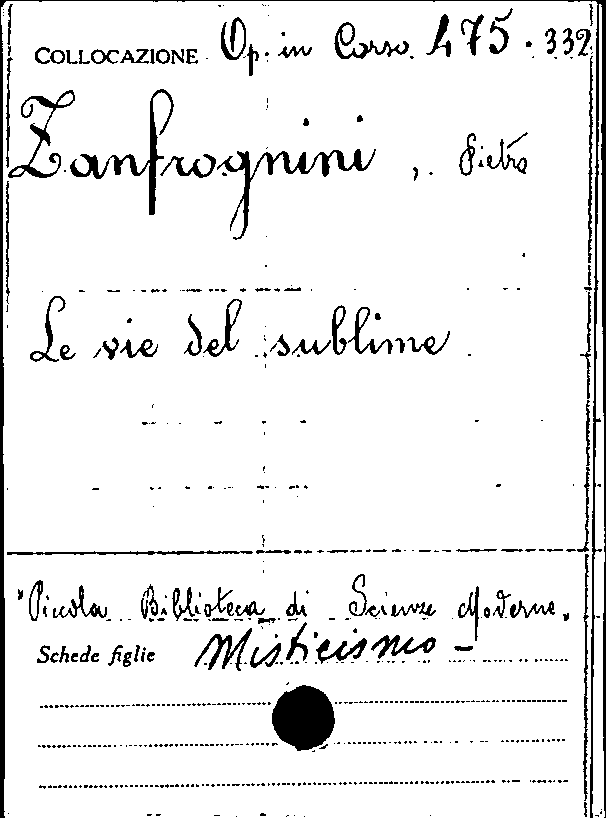 COLLOCAZIONE Op. in Corso. 475. 332
Zanfrognini, Pietro
Le vie del sublime
"Piccola Biblioteca di Scienze Moderne"
Schede figlie Misticismo -